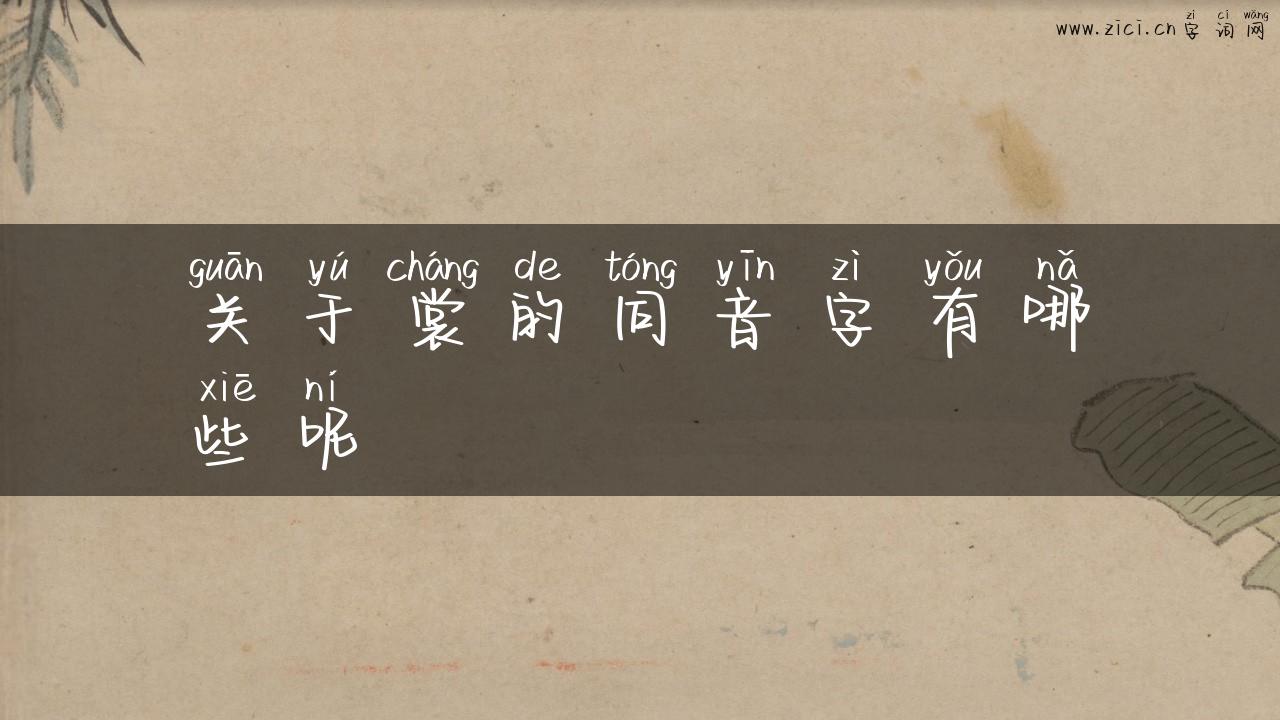 zì cí wǎng
www.zici.cn 字 词 网
guān yú cháng de tóng yīn zì yǒu nǎ
关 于 裳 的 同 音 字 有 哪
xiē ní
些 呢